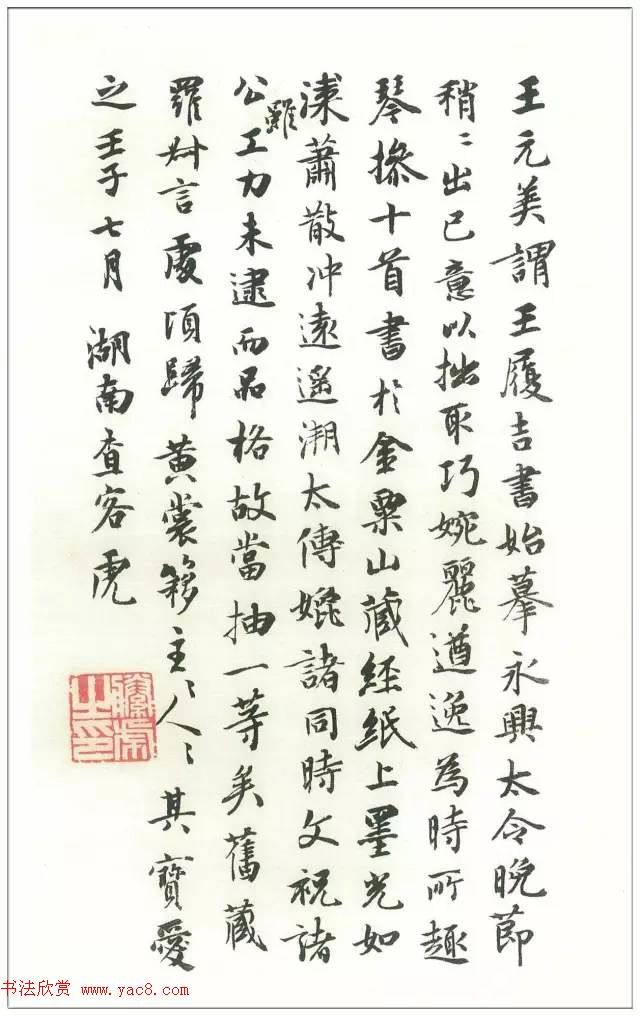 王元美謂王履吉書始摹永興太令晚節
稍〻出己意以拙取巧婉麗遒逸為時所趣
琴操十首書於金粟山藏經紙上墨光如
漆蕭散沖遠遥溯太傅媲諸同時文祝諸
公雖工力未逮而品格故當抽一等矣舊藏
羅叔言處頃歸黄裳簃主〻人〻其寶愛
之壬子七月 湖南查客虎
之印
书法欣赏 www.yac8.com